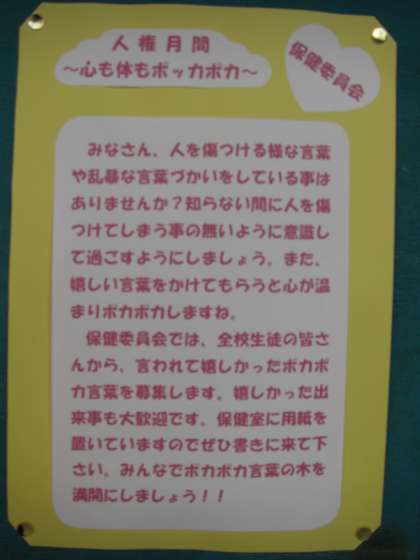 人権月間
～心も体もポッカポカ～
保健委員会
みなさん、人を傷つける様な言葉
や乱暴な言葉づかいをしている事は
ありませんか？知らない間に人を傷
つけてしまう事の無いように意識し
て過ごすようにしましょう。また、
嬉しい言葉をかけてもらうと心が温
まりポカポカしますね。
保健委員会では、全校生徒の皆さ
んから、言われて嬉しかったポカポ
カ言葉を募集します。嬉しかった出
来事も大歓迎です。保健室に用紙を
置いていますのでぜひ書きに来て下
さい。みんなでポカポカ言葉の木を
満開にしましょう！！